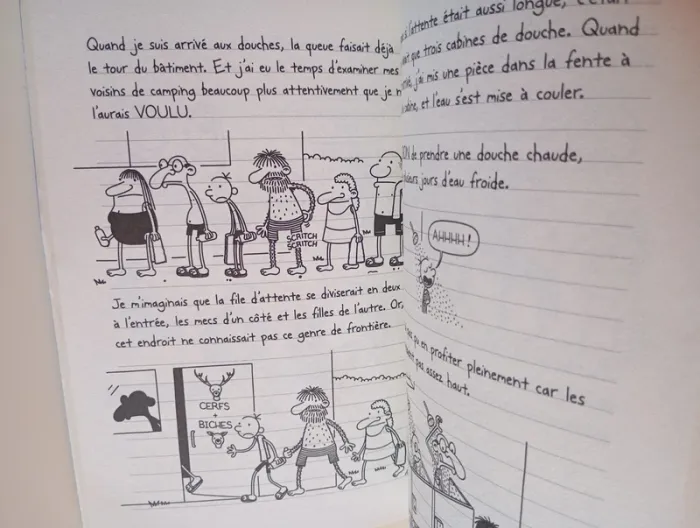 Quand je suis arrivé aux douches, la queue faisait déjà
le tour du bâtiment. Et j'ai eu le temps d'examiner mes
voisins de camping beaucoup plus attentivement que je n
l'aurais VOULU.
SCRITCH
SCRITCH
Je m'imaginais que la file d'attente se diviserait en deux
à l'entrée, les mecs d'un côté et les filles de l'autre. Or,
cet endroit ne connaissait pas ce genre de frontière.
CERFS
+
BICHES
l'attente était aussi longue,
que trois cabines de douche. Quand
j'ai mis une pièce dans la fente à
et l'eau s'est mise à couler.
de prendre une douche chaude,
jours d'eau froide.
AHHHH!
en profiter pleinement car les
pas assez haut.